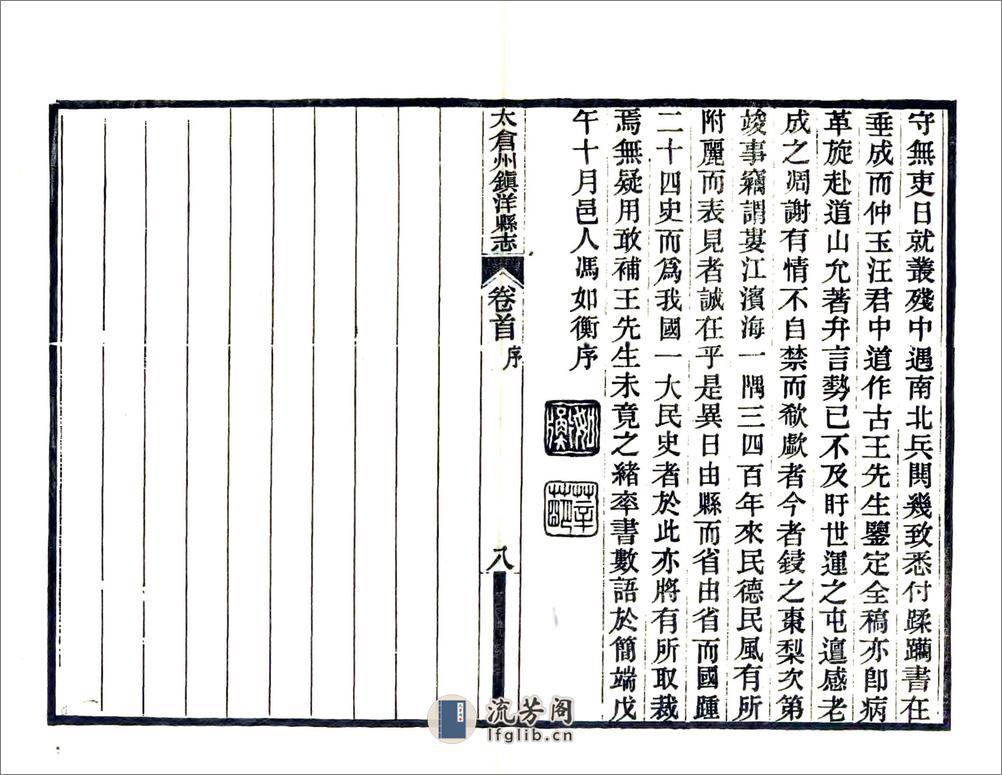 守無吏日就叢殘中遇南北兵鬨幾致悉付蹂躪書在
垂成而仲玉汪君中道作古王先生鑒定全稿亦卽病
革旋赴道山允著弁言勢已不及盱世運之屯邅感老
成之凋謝有情不自禁而欷歔者今者鋟之棗梨次第
竣事竊謂婁江濱海一隅三四百年來民德民風有所
附麗而表見者誠在乎是異日由縣而省由省而國踵
二十四史而爲我國一大民史者於此亦將有所取裁
焉無疑用敢補王先生未竟之緒率書數語於簡端戊
午十月邑人馮如衡序
太倉州鎮洋縣志
卷首
序
八
流芳阁
lfglib.cn